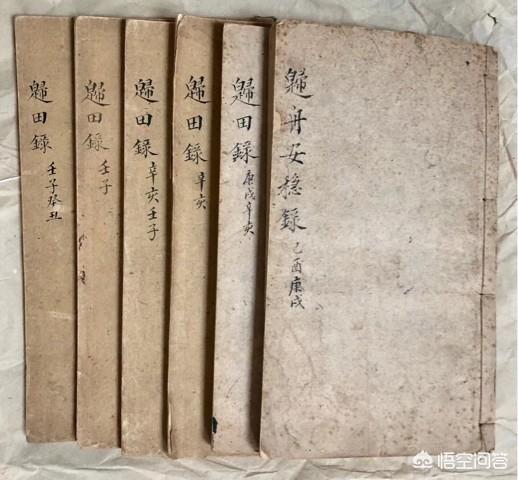 歸舟安穩錄 己酉庚戌
歸田錄 庚戌辛亥
歸田錄 辛亥
歸田錄 辛亥壬子
歸田錄 壬子
歸田錄 壬子癸丑
悟空问答